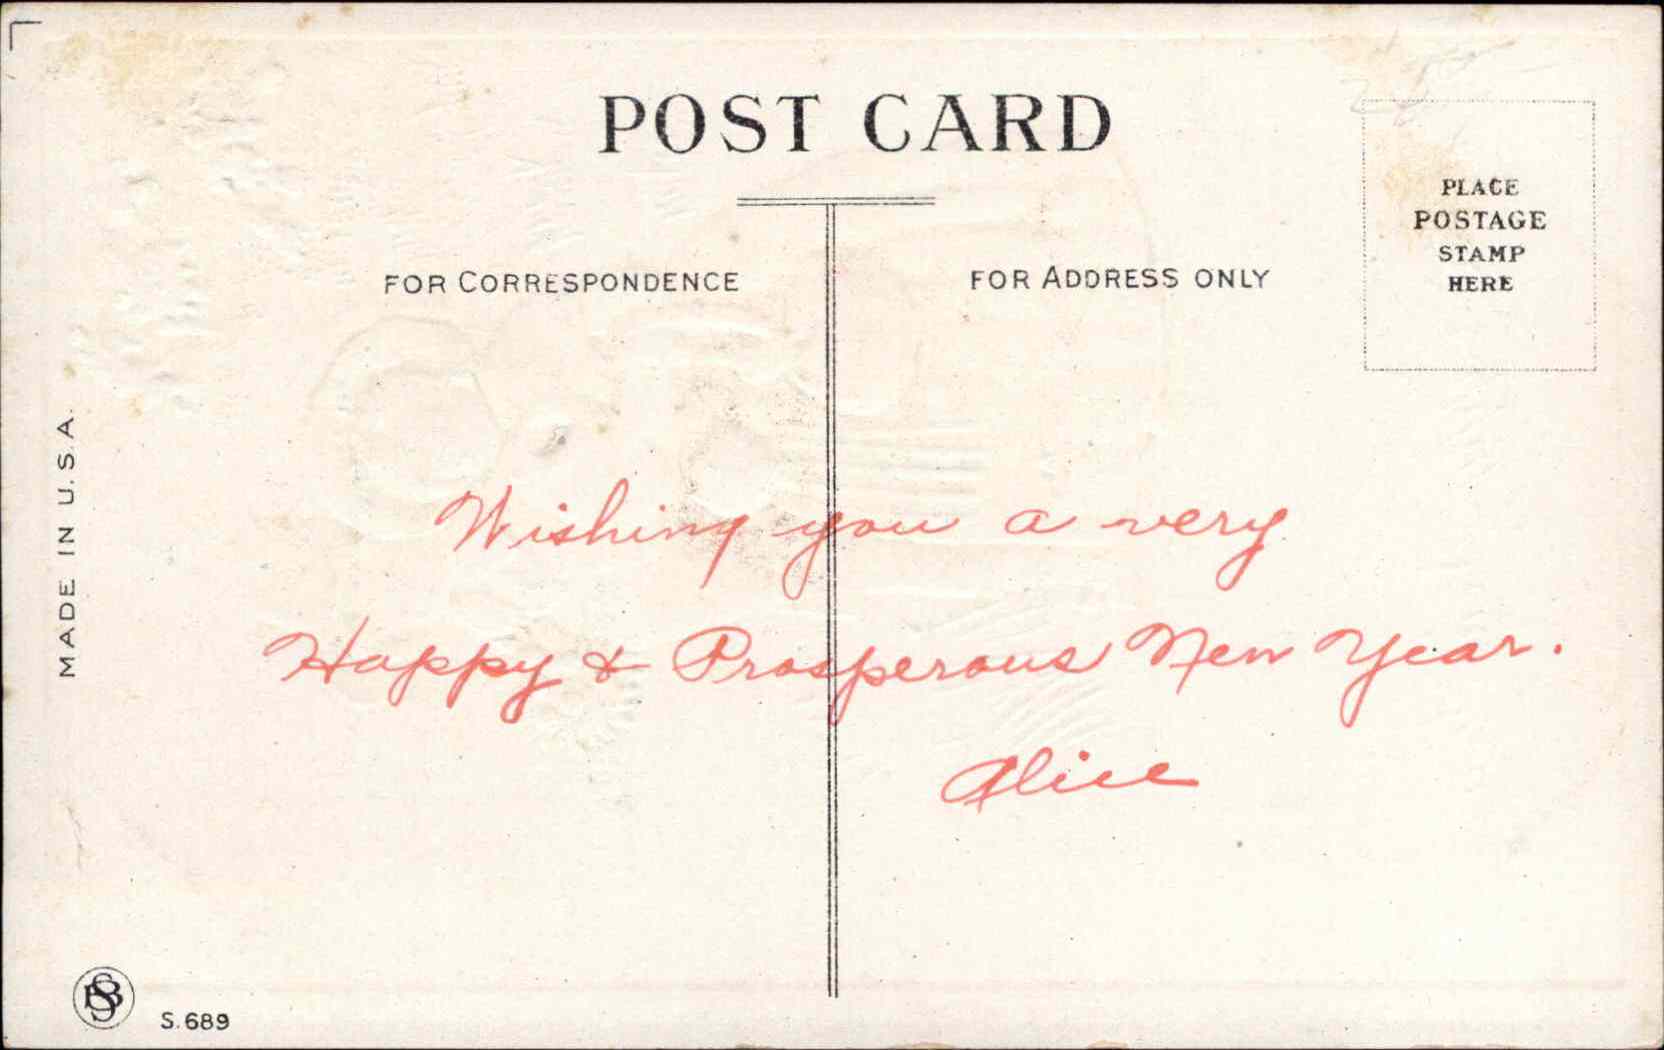 POST CARD
FOR CORRESPONDENCE
FOR ADDRESS ONLY
PLACE
POSTAGE
STAMP
HERE
MADE IN U.S.A.
Wishing you a very
Happy & Prosperous New Year.
Alice
S. 689